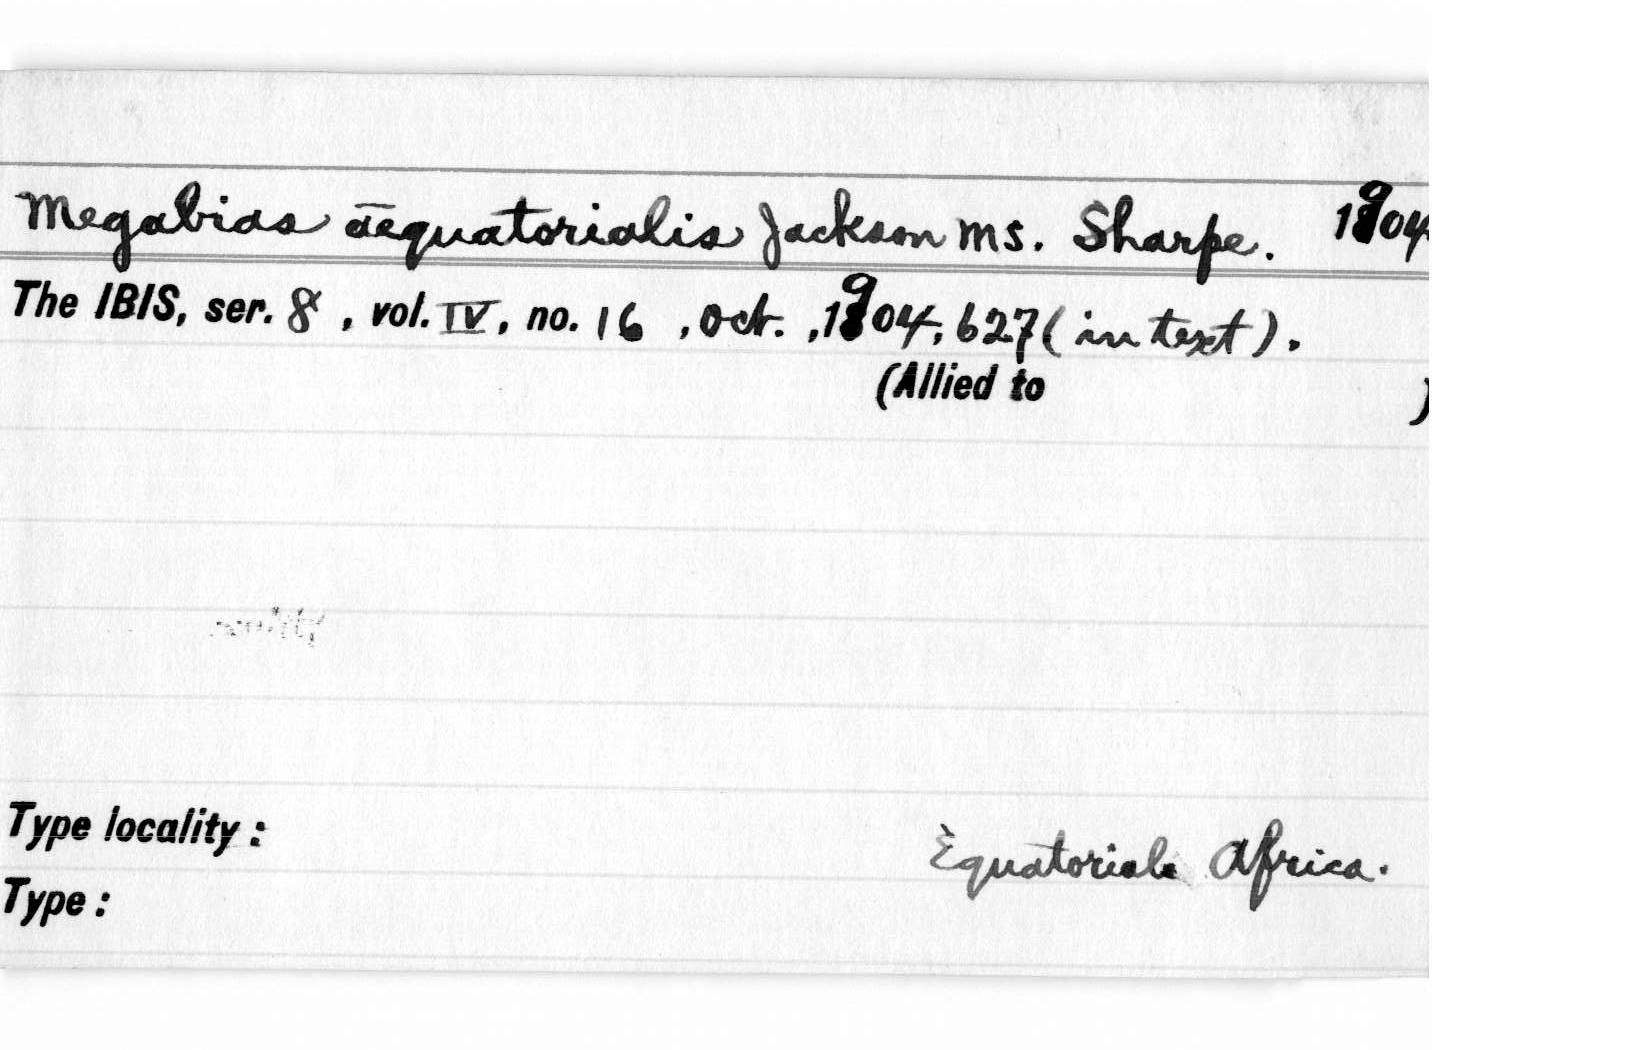 Megabias aequatorialis Jackson ms. Sharpe. 1904
The IBIS, ser. 8, vol. IV, no. 16, Oct., 1904, 627 (in text).
(Allied to )
Type locality: Equatorial Africa.
Type: